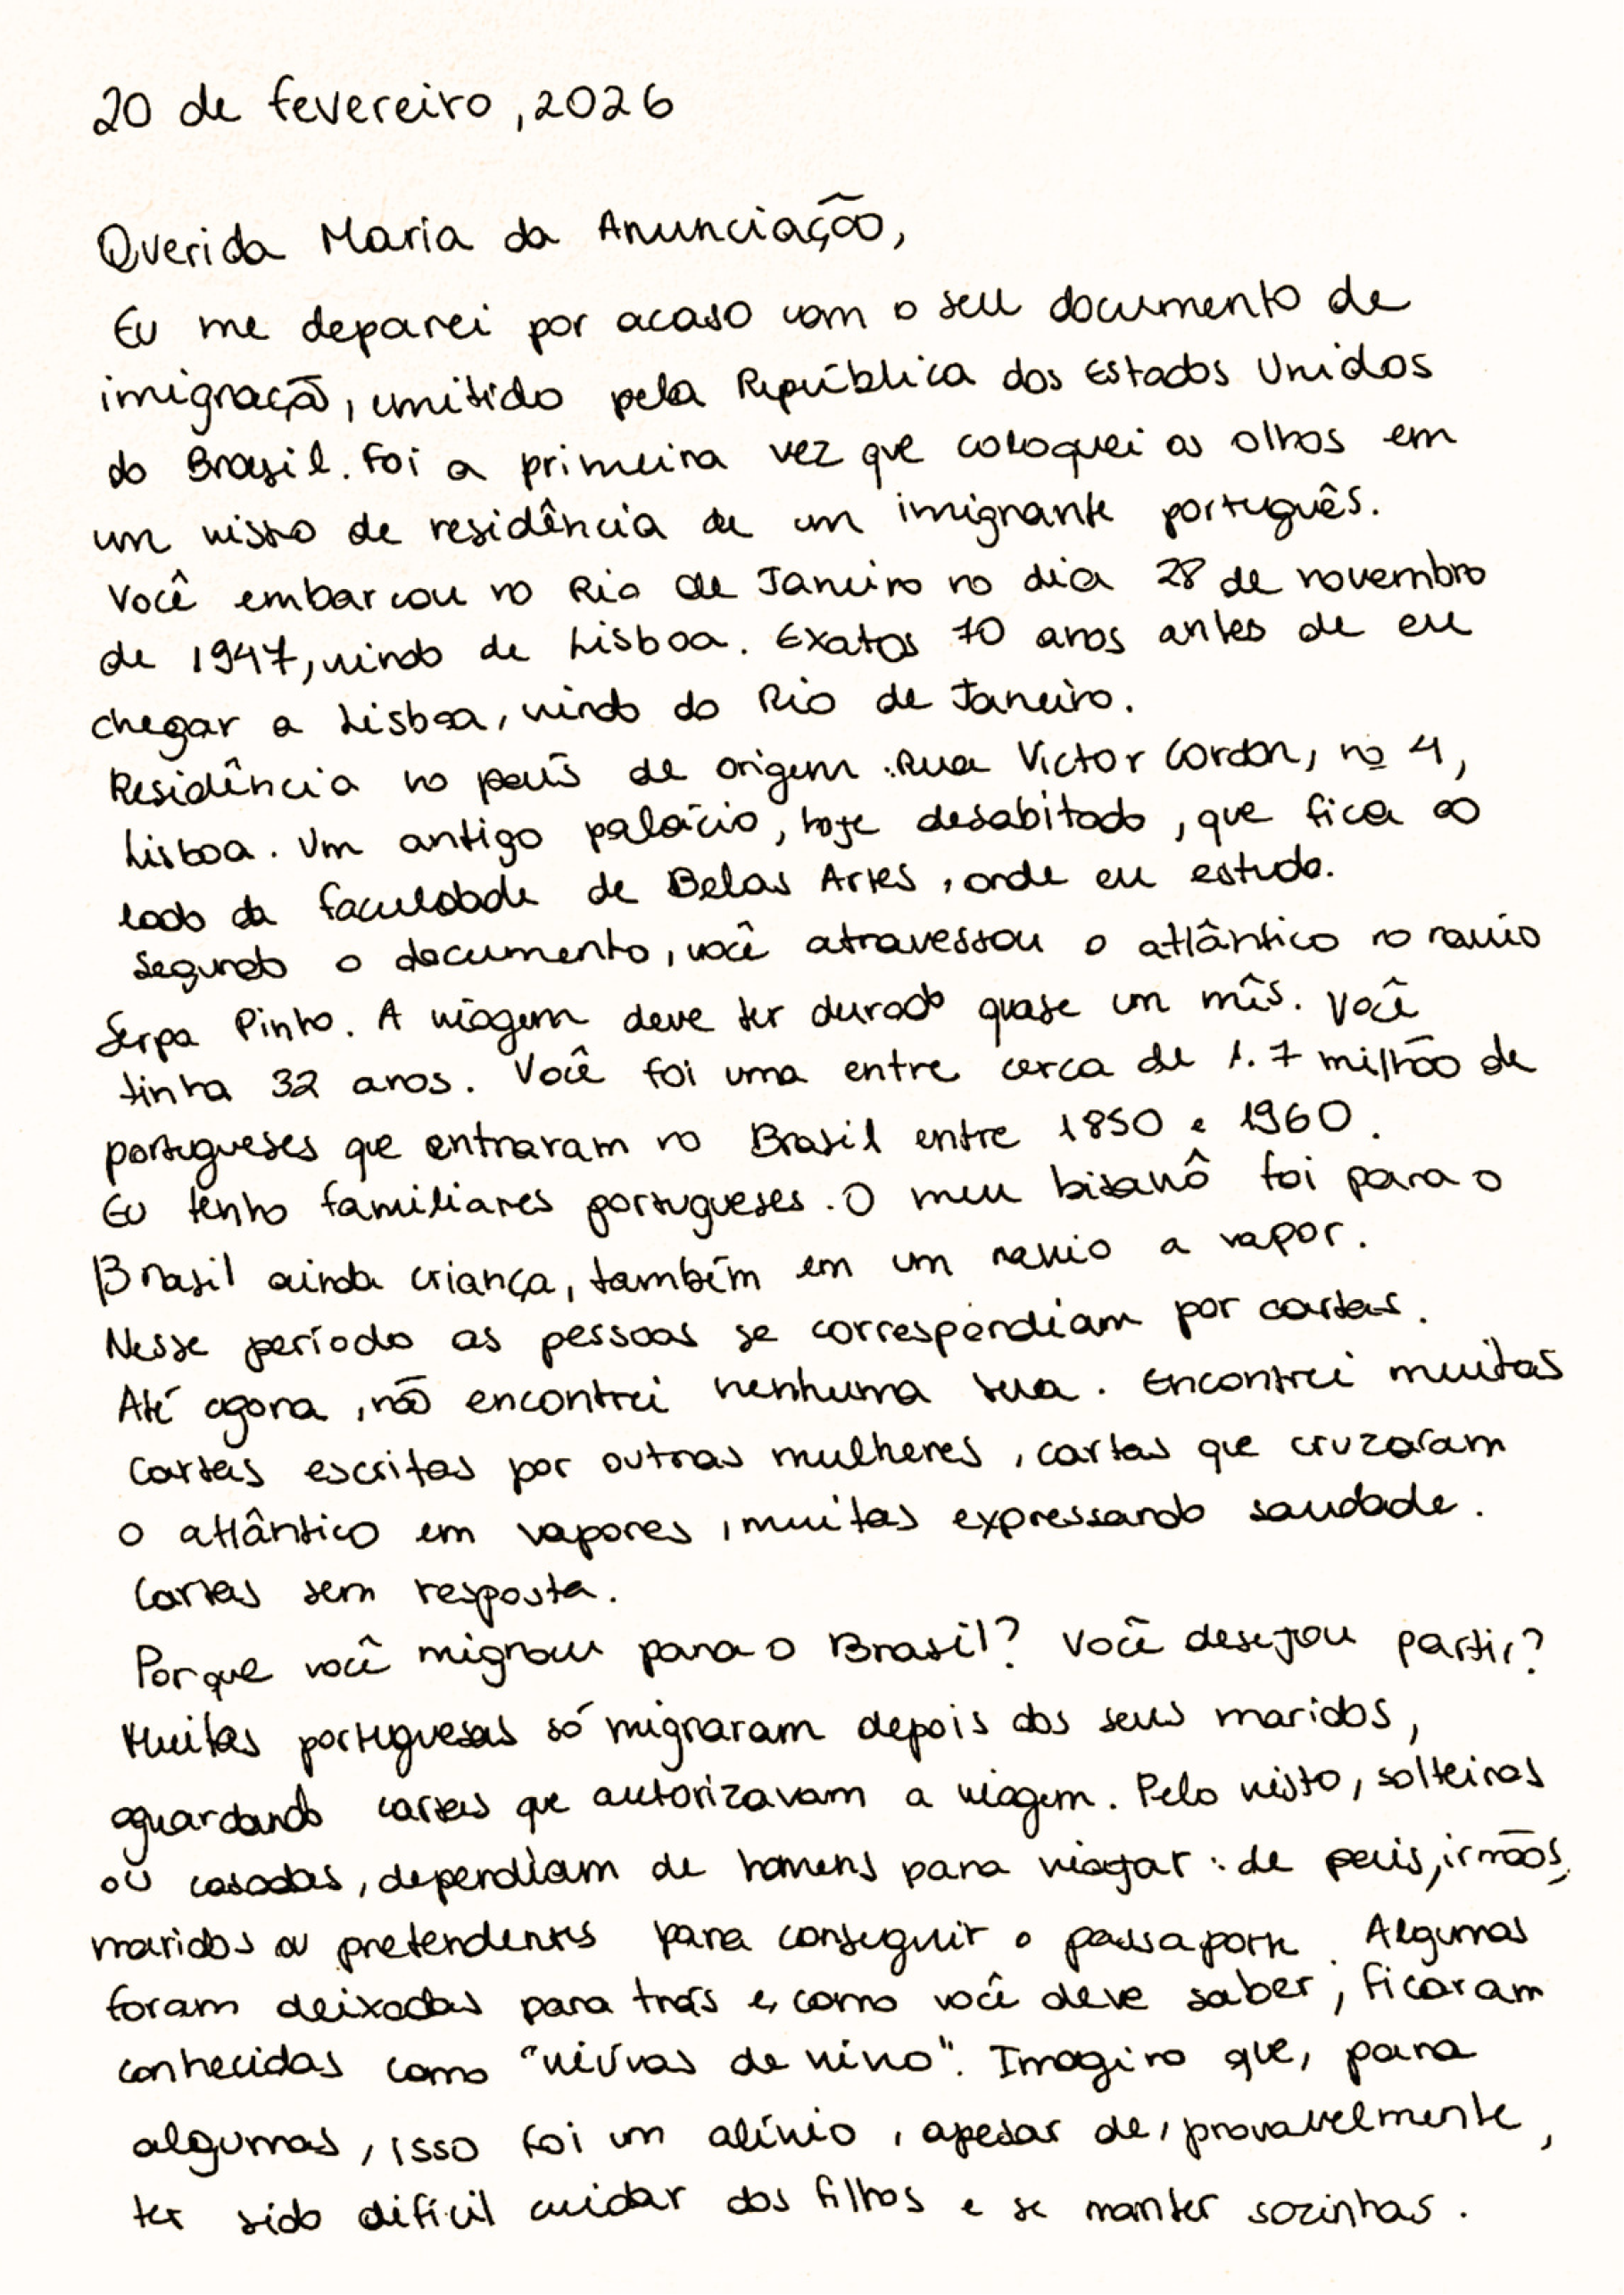 20 de fevereiro, 2026
Querida Maria da Anunciação,
Eu me deparei por acaso com o seu documento de
imigração, emitido pela República dos Estados Unidos
do Brasil. Foi a primeira vez que coloquei os olhos em
um visto de residência de um imigrante português.
Você embarcou no Rio de Janeiro no dia 28 de novembro
de 1947, vindo de Lisboa. Exatos 70 anos antes de eu
chegar a Lisboa, vindo do Rio de Janeiro.
Residência no país de origem: Rua Victor Cordon, nº 4,
Lisboa. Um antigo palácio, hoje desabitado, que fica ao
lado da faculdade de Belas Artes, onde eu estudo.
Segundo o documento, você atravessou o atlântico no navio
Serpa Pinto. A viagem deve ter durado quase um mês. Você
tinha 32 anos. Você foi uma entre cerca de 1.7 milhão de
portugueses que entraram no Brasil entre 1850 e 1960.
Eu tenho familiares portugueses. O meu bisavô foi para o
Brasil ainda criança, também em um navio a vapor.
Nesse período as pessoas se correspondiam por cartas.
Até agora, não encontrei nenhuma sua. Encontrei muitas
cartas escritas por outras mulheres, cartas que cruzaram
o atlântico em vapores, muitas expressando saudade.
Cartas sem resposta.
Porque você migrou para o Brasil? Você desejou partir?
Muitas portuguesas só migraram depois dos seus maridos,
aguardando cartas que autorizavam a viagem. Pelo visto, solteiras
ou casadas, dependiam de homens para viajar: de pais, irmãos,
maridos ou pretendentes para conseguir o passaporte. Algumas
foram deixadas para trás e, como você deve saber, ficaram
conhecidas como "viúvas de vivo". Imagino que, para
algumas, isso foi um alívio, apesar de, provavelmente,
ter sido difícil cuidar dos filhos e se manter sozinhas.